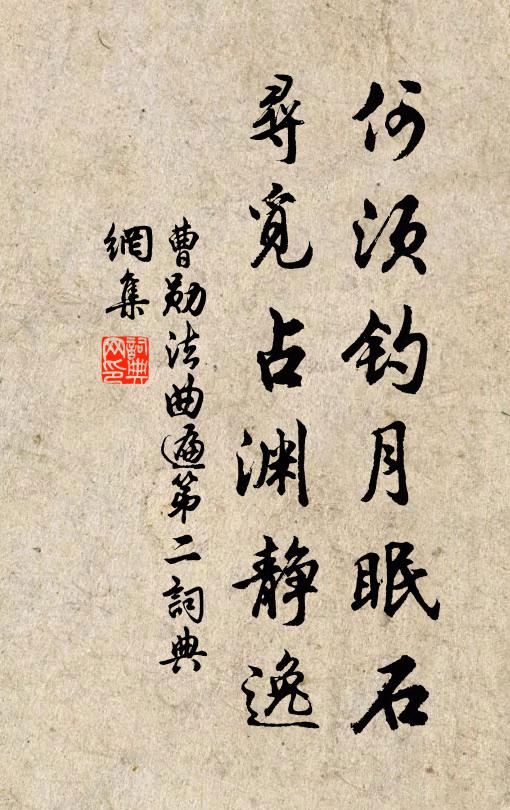 何须钓月眠石
寻觅占渊静逸
曹勋法曲遍第二词典
网集
词典网印